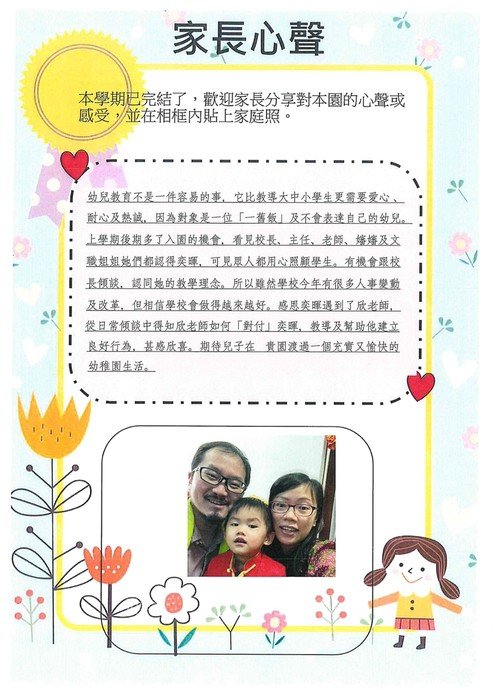 家長心聲
本學期已完結了，歡迎家長分享對本園的心聲或
感受，並在相框內貼上家庭照。
幼兒教育不是一件容易的事，它比教導大中小學生更需要愛心、
耐心及熱誠，因為對象是一位「一舊飯」及不會表達自己的幼兒。
上學期後期多了入園的機會，看見校長、主任、老師、嬸嬸及文
職姐姐她們都認得奕暉，可見眾人都用心照顧學生。有機會跟校
長傾談，認同她的教學理念。所以雖然學校今年有很多人事變動
及改革，但相信學校會做得越來越好。感恩奕暉遇到了欣老師，
從日常傾談中得知欣老師如何「對付」奕暉，教導及幫助他建立
良好行為，甚感欣喜。期待兒子在 貴園渡過一個充實又愉快的
幼稚園生活。